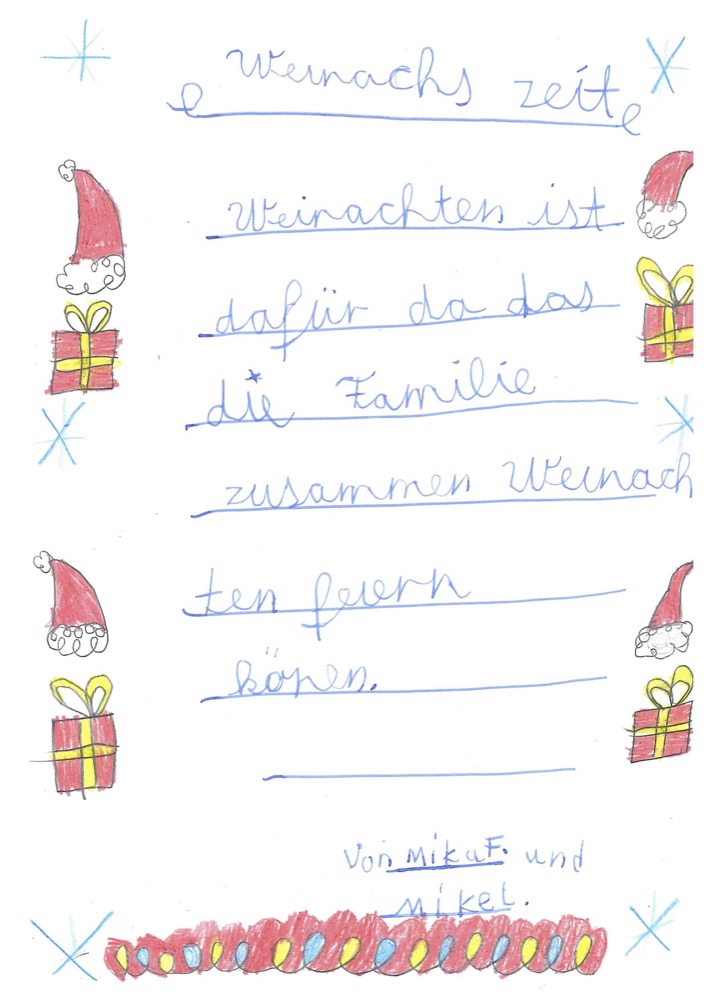 Weinachs zeit
Weinachten ist
dafür da das
die Familie
zusammen Weinach
ten feiern
köpen.
Von Mika F. und
Mikel.